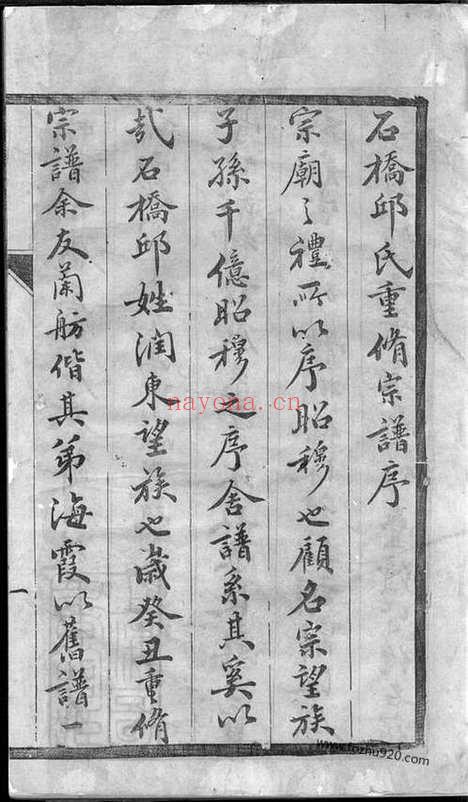 石橋邱氏重脩宗譜序
宗廟之禮所以序昭穆也顧名宗望族
子孫千億昭穆之序舍譜系其奚以
哉石橋邱姓潤東望族也歲癸丑重脩
宗譜余友蘭舫偕其弟海霞以舊譜一
一
nayona.cn
www.fozhu920.com